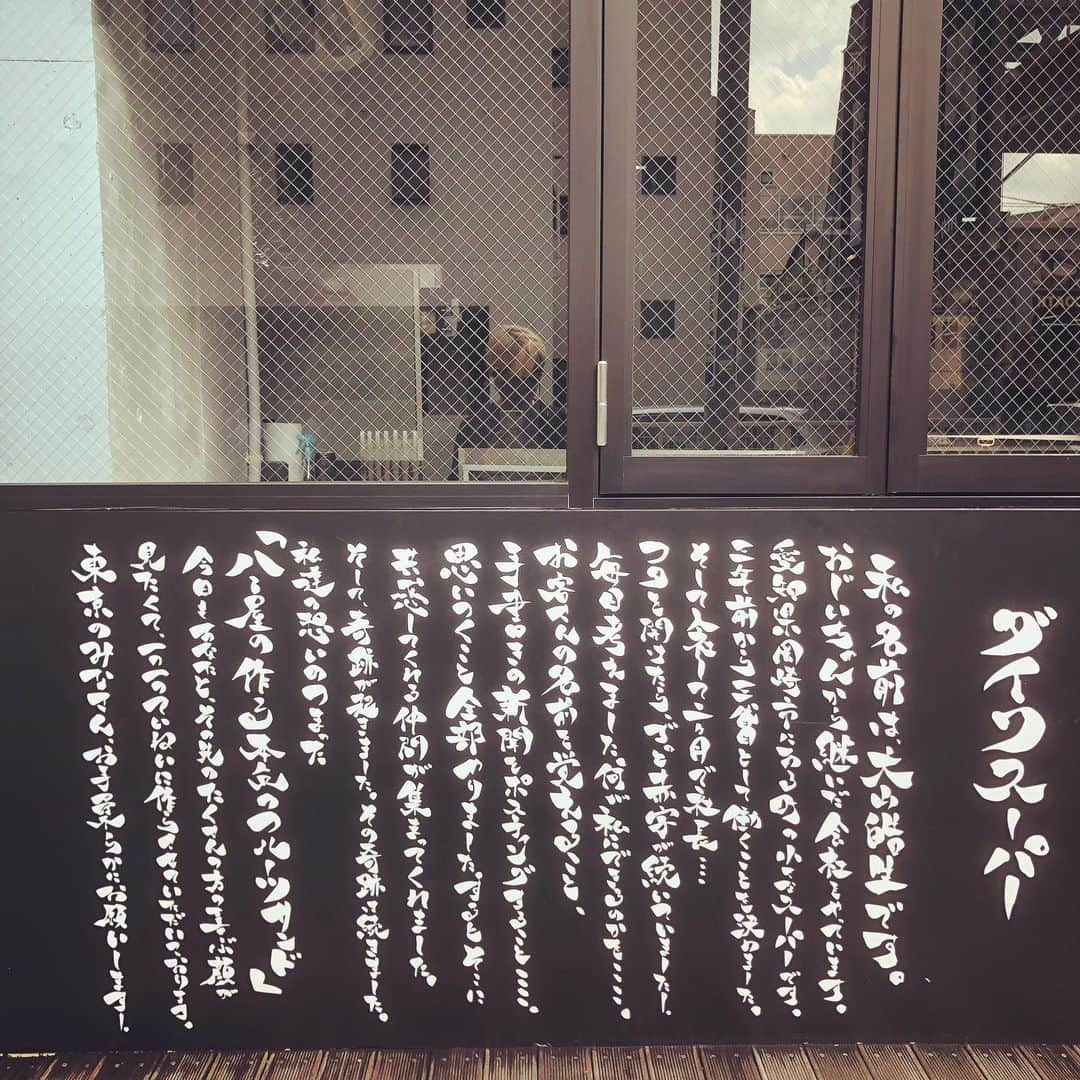 ダイワスーパー
私の名前は、大山皓生です。
おじいちゃんから継いだ会社をやっています。
愛知県岡崎市にある町の小さなスーパーです。
三年前から三代目として働くことを決めました。
そして入社して二ヶ月で社長…
フタを開けたら、びっくり赤字が続いていました!
毎日考えました。何が私にできるのかを……。
お客さんの名前を覚えること、
手書きの新聞をポスティングすること……。
思いつくこと全部やりました。すると
共感してくれる仲間が集まってくれました。
そして、奇跡が起きました。その奇跡は続きました。
私達の想いのつまった
「八百屋の作る本気のフルーツサンド」
今日もあなたとその先のたくさんの方の喜ぶ顔が
見たくて、一つ一つていねいに作らせていただいております。
東京のみなさん、お手柔らかにお願いします!